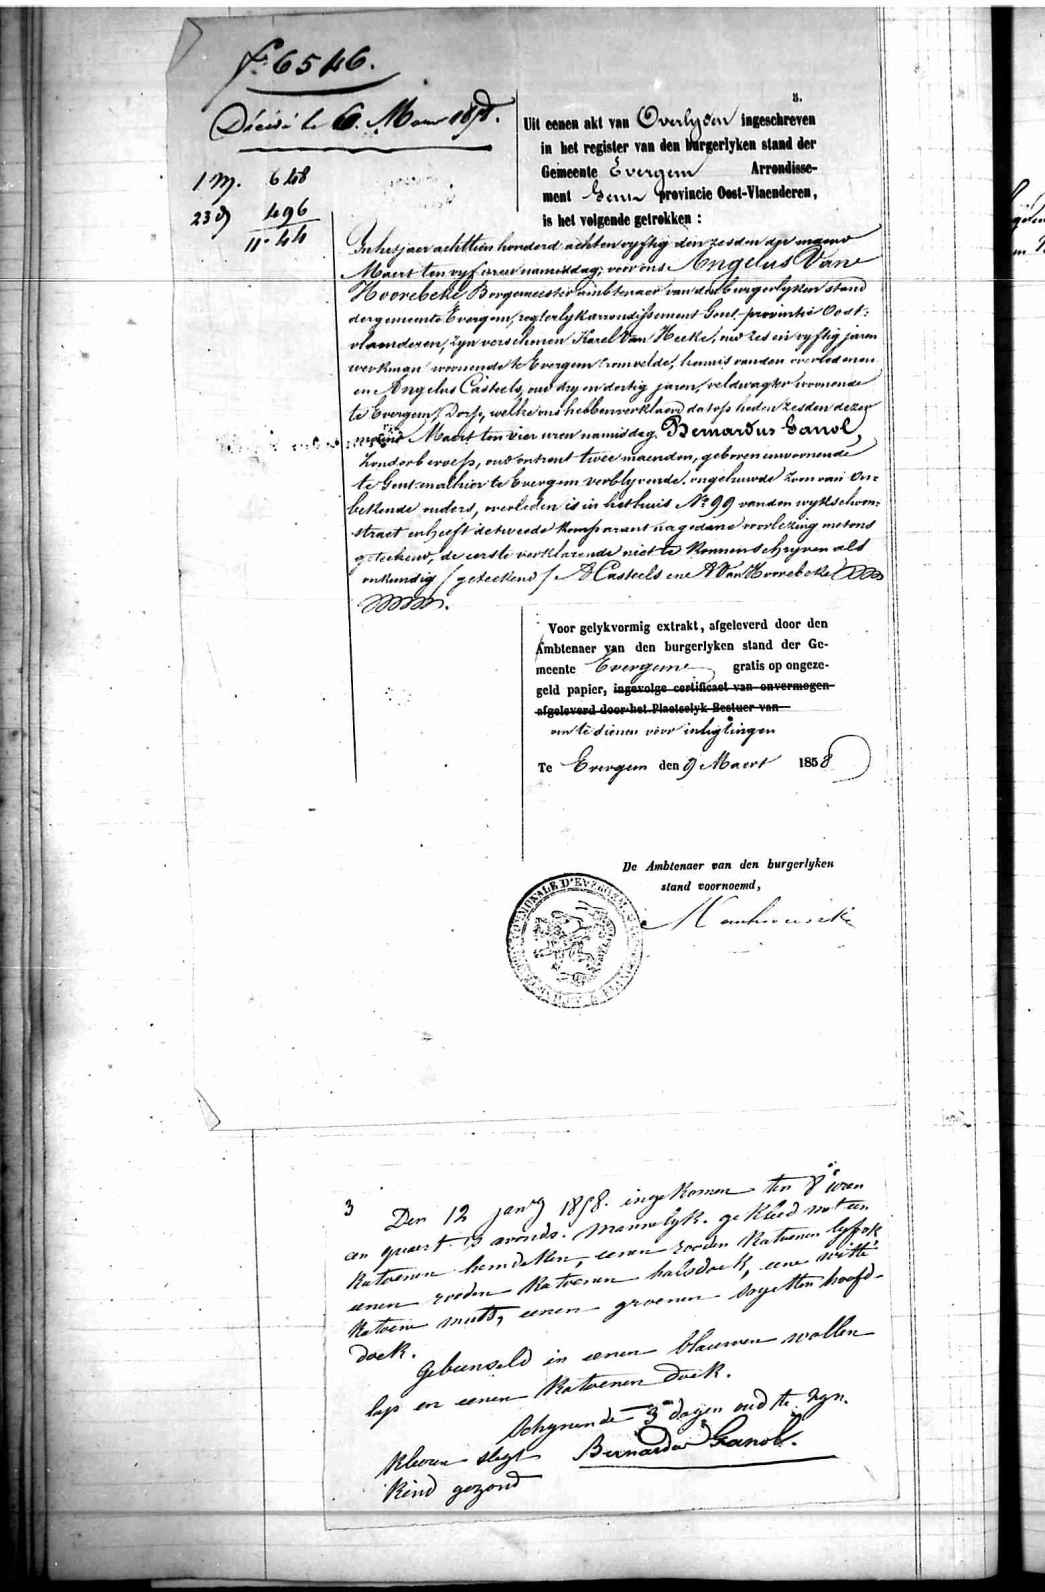 f° 6546.
Décédé le 6. Mars 1858.
1 m. 648
23 j 496
11.44
3.
Uit eenen akt van Overlyden ingeschreven
in het register van den burgerlyken stand der
Gemeente Evergem Arrondisse-
ment Gent provincie Oost-Vlaenderen,
is het volgende getrokken :
In het jaer achttien honderd achtenvyftig den zesden der maend
Maert ten vyf uren namiddag; voor ons Angelus Van
Hoorebeke Borgemeester ambtenaer van den burgerlyken stand
der gemeente Evergem, regterlyk arrondissement Gent provintie Oost-
vlaenderen, zyn verschenen Karel Van Hecke, oud zes en vyftig jaren
werkman woonende te Evergem, kennis van den overledenen
en Angelus Casteels, oud dry en dertig jaren, veldwagter woonende
te Evergem, Dorp, welke ons hebben verklaerd dat op heden zesden dezer
maend Maert ten vier uren namiddag, Bernardus Ganol,
zonder beroep, oud ontrent twee maenden, geboren en woonende
te Gent maer hier te Evergem verblyvende, ongehuwde zoon van On-
bekende ouders, overleden is in het huis N° 99 van den wyk
straet en heeft de tweede komparant na gedane voorlezing met ons
geteekend, de eerste verklarende niet te konnen schryven als
onkundig / geteekend / A Casteels en A Van Hoorebeke
Voor gelykvormig extrakt, afgeleverd door den
Ambtenaer van den burgerlyken stand der Ge-
meente Evergem gratis op ongeze-
geld papier, ingevolge certificaet van onvermogen
afgeleverd door het Plaetselyk Bestuer van
om te dienen voor inligtingen
Te Evergem den 9 Maert 1858
De Ambtenaer van den burgerlyken
stand voornoemd,
COMMUNALE D'EVERGEM
3 Den 12 janry 1858. ingekomen ten 8 uren
en quaert 's avonds. mannelyk. gekleed met een
katoenen hemdeken, eenen rooden katoenen lyfrok
eenen rooden katoenen halsdoek, eene witte
katoene muts, eenen groenen sayetten hoofd-
doek.
Gebunseld in eenen blauwen wollen
lap en eenen katoenen doek.
Schynende 3 dagen oud te zyn.
Kleeren slegt Bernardus Ganol.
Kind gezond